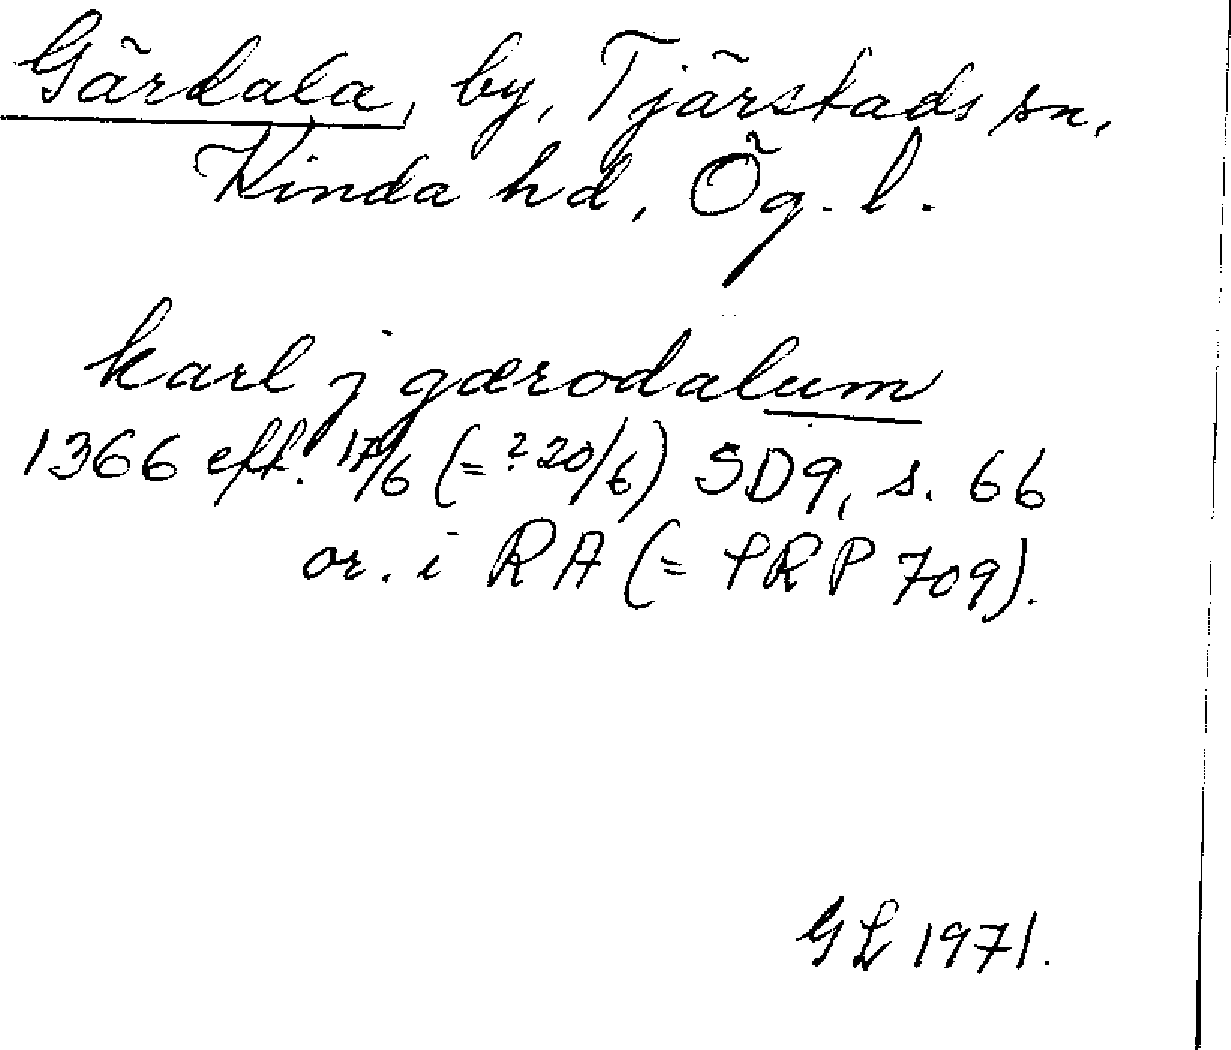 Gärdala, by, Tjärstads sn,
Kinda hd, Ög. l.
karl j gærodalum
1366 eft. 17/6 (=? 20/6) SD9, s. 66
or. i RA (= fRP 709).
GL 1971.